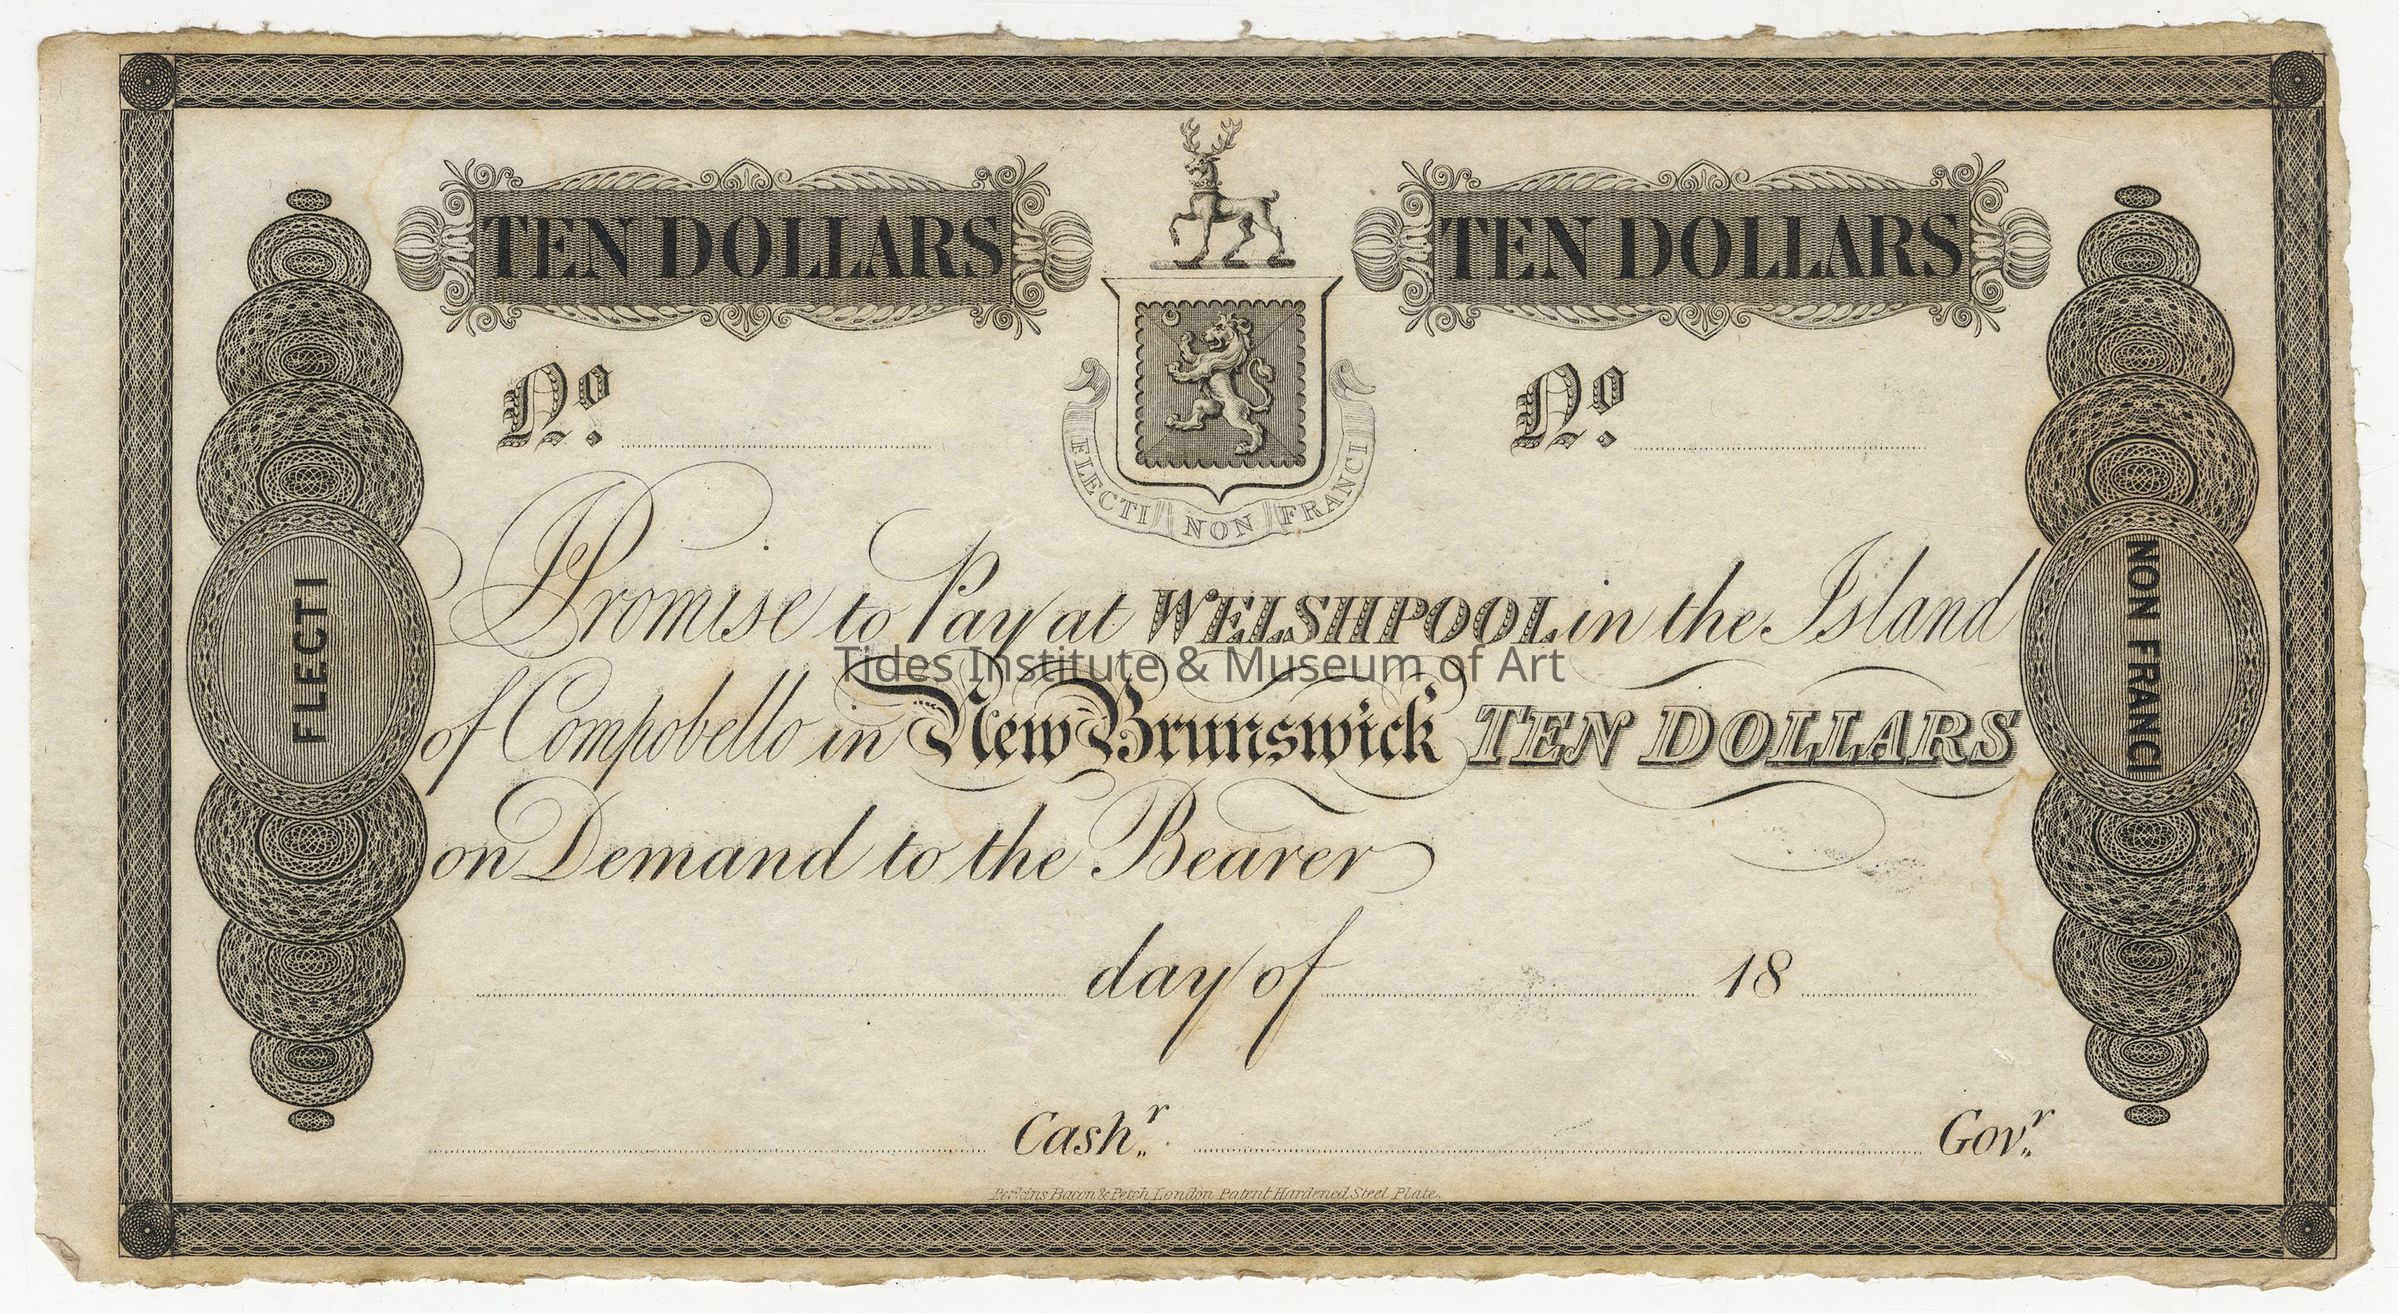 TEN DOLLARS TEN DOLLARS
No. No.
FLECTI NON FRANCI
Promise to Pay at WELSHPOOL in the Island
Tides Institute & Museum of Art
of Compobello in New Brunswick TEN DOLLARS
on Demand to the Bearer
FLECTI
NON FRANCI
day of 18
Cashr. Govr.
Perkins Bacon & Petch London Patent Hardened Steel Plate.